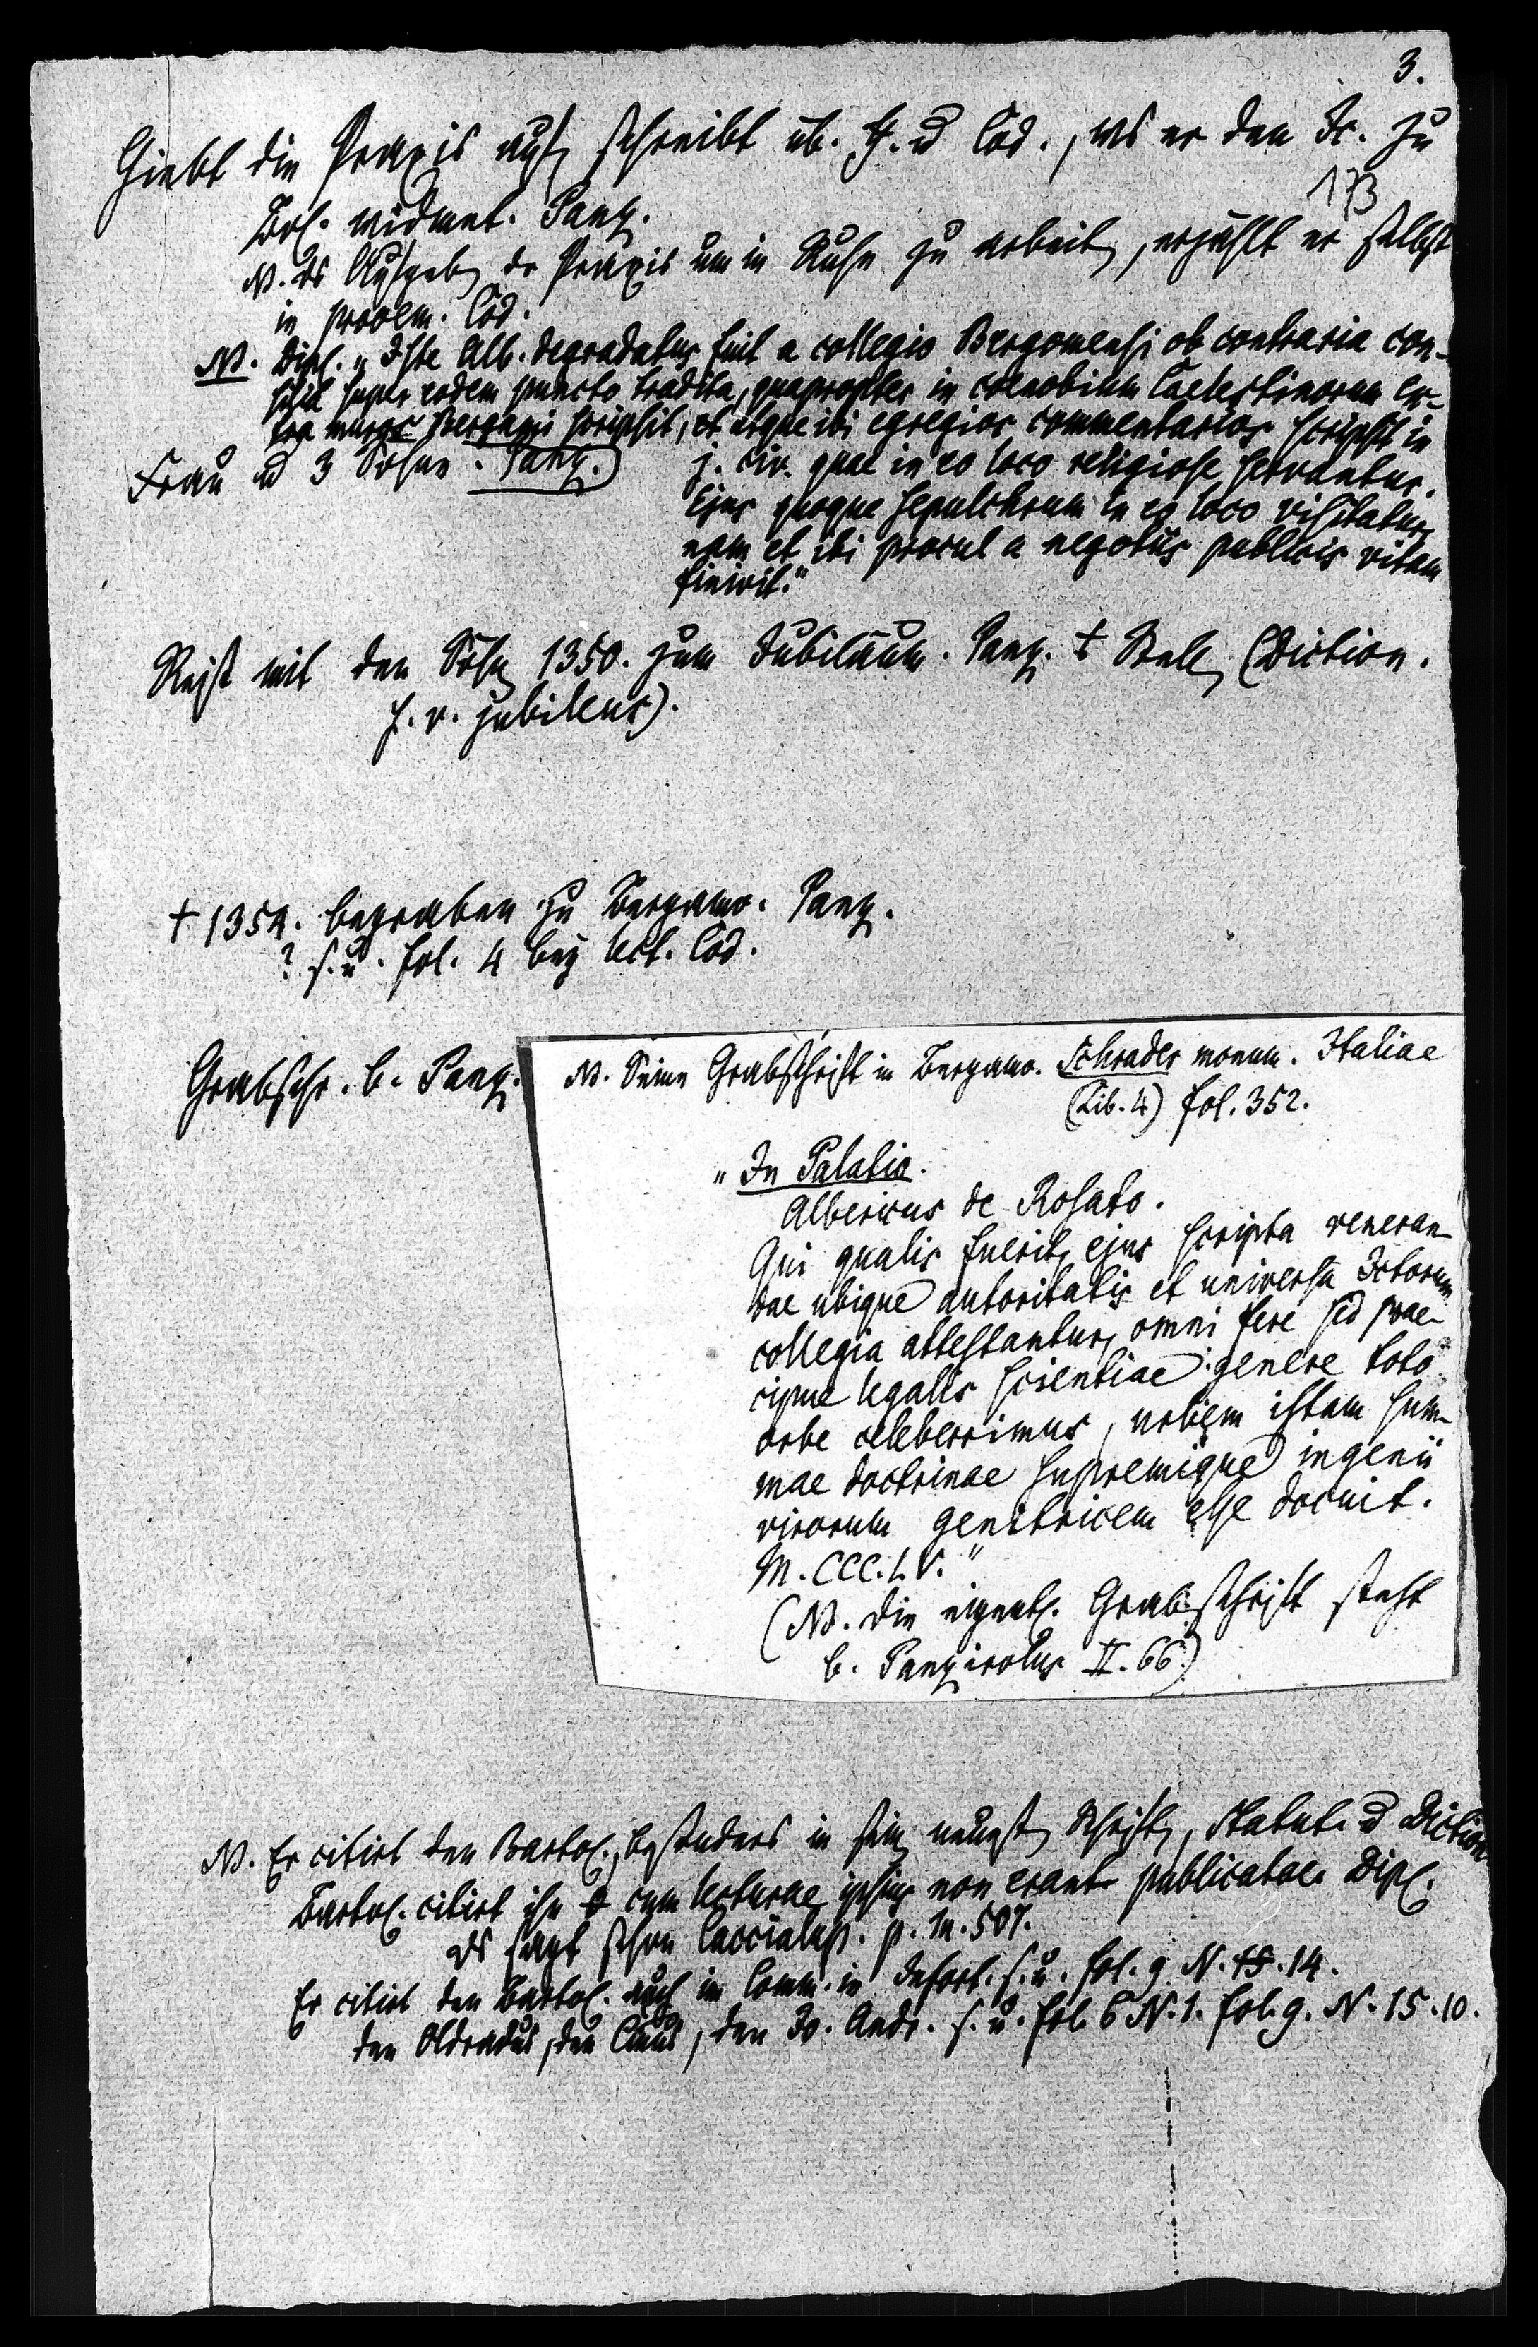 3.
Giebt die Praxis auf, schreibt üb. ff. u Cod., was er den Jc. zu
173
Bol. widmet. Panz.
N. Ds Aufgeben dr Praxis um in Ruhe zu arbeiten, erzählt er selbst
in prooem. Cod.
N. Dipl. „Iste Alb. degradatus fuit a collegio Bergomensi ob contraria con-
silia super eodem puncto tradita, quapropter in coenobium Caelestinorum ex-
tra muros Bergami scripsit, et atque ibi egregios commentarios scripsit in
j. civ. quae in eo loco religiose servantur.
Ejus quoque sepulchrum in eo loco visitatur,
nam et ibi procul a negotiis publicis vitam
finivit."
Frau u 3 Söhne. Panz.)
Reist mit den Söhn 1350. zum Jubiläum. Panz. + (Diction.
s. v. jubileus).
+ 1354. begraben zu Bergamo. Panz.
? s. u. fol. 4 bey lect. Cod.
Grabschr. b. Panz.
N. Seine Grabschrift in Bergamo. Schrader monum. Italiae
(Lib. 4) fol. 352.
„In Palatio.
Albericus de Rosato.
Qui qualis fuerit, ejus scripta veneran-
dae ubique autoritatis et universa Jctorum
collegia attestantur, omni fere sed prae-
cipue legalis scientiae genere toto
orbe celeberrimus, urbem istam sum-
mae doctrinae supremique ingenii
virorum genitricem esse docuit.
M. CCC. L V."
(N. die eigentl. Grabschrift steht
b. Panzirolus II. 66)
N. Er citirt den Bartol., besonders in sein neuest Schrift, Statut. u Diction.
Bartol. citirt ihn cum lecturae ipsius non erant publicatae. Dipl.
Ds sagt schon Caccialup. p. m. 507.
Er citirt den Bartol. auch im Comm. in Infort. s. u. fol. 9 N. 14.
den Oldradus, den Cinus, den Jo. Andr. s. u. fol. 6 N. 1. fol. 9. N. 15. 10.